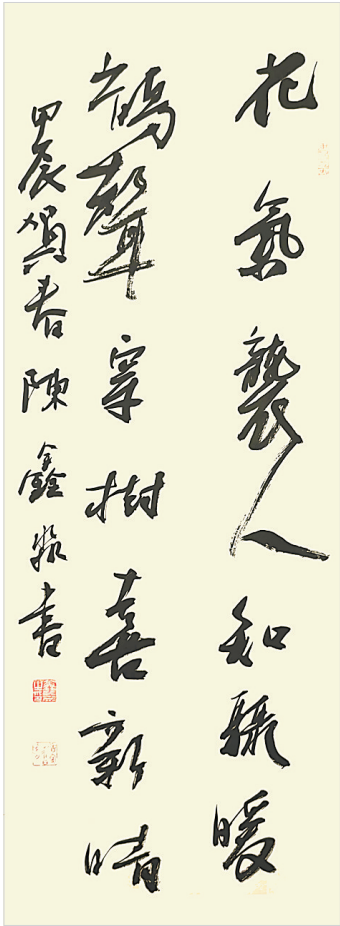 花氣襲人知驟暖
鵲聲穿樹喜新晴
甲辰春陳鑫書